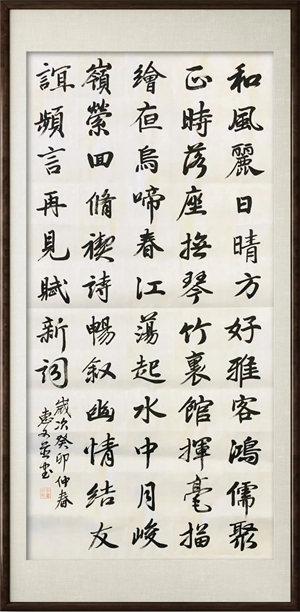 和風麗日晴方好雅客鴻儒聚
正時落座撫琴竹裏館揮毫描
繪夜烏啼春江蕩起水中月峻
嶺縈回脩禊詩暢叙幽情結友
誼頻言再見賦新詞
歲次癸卯仲春
惠文书